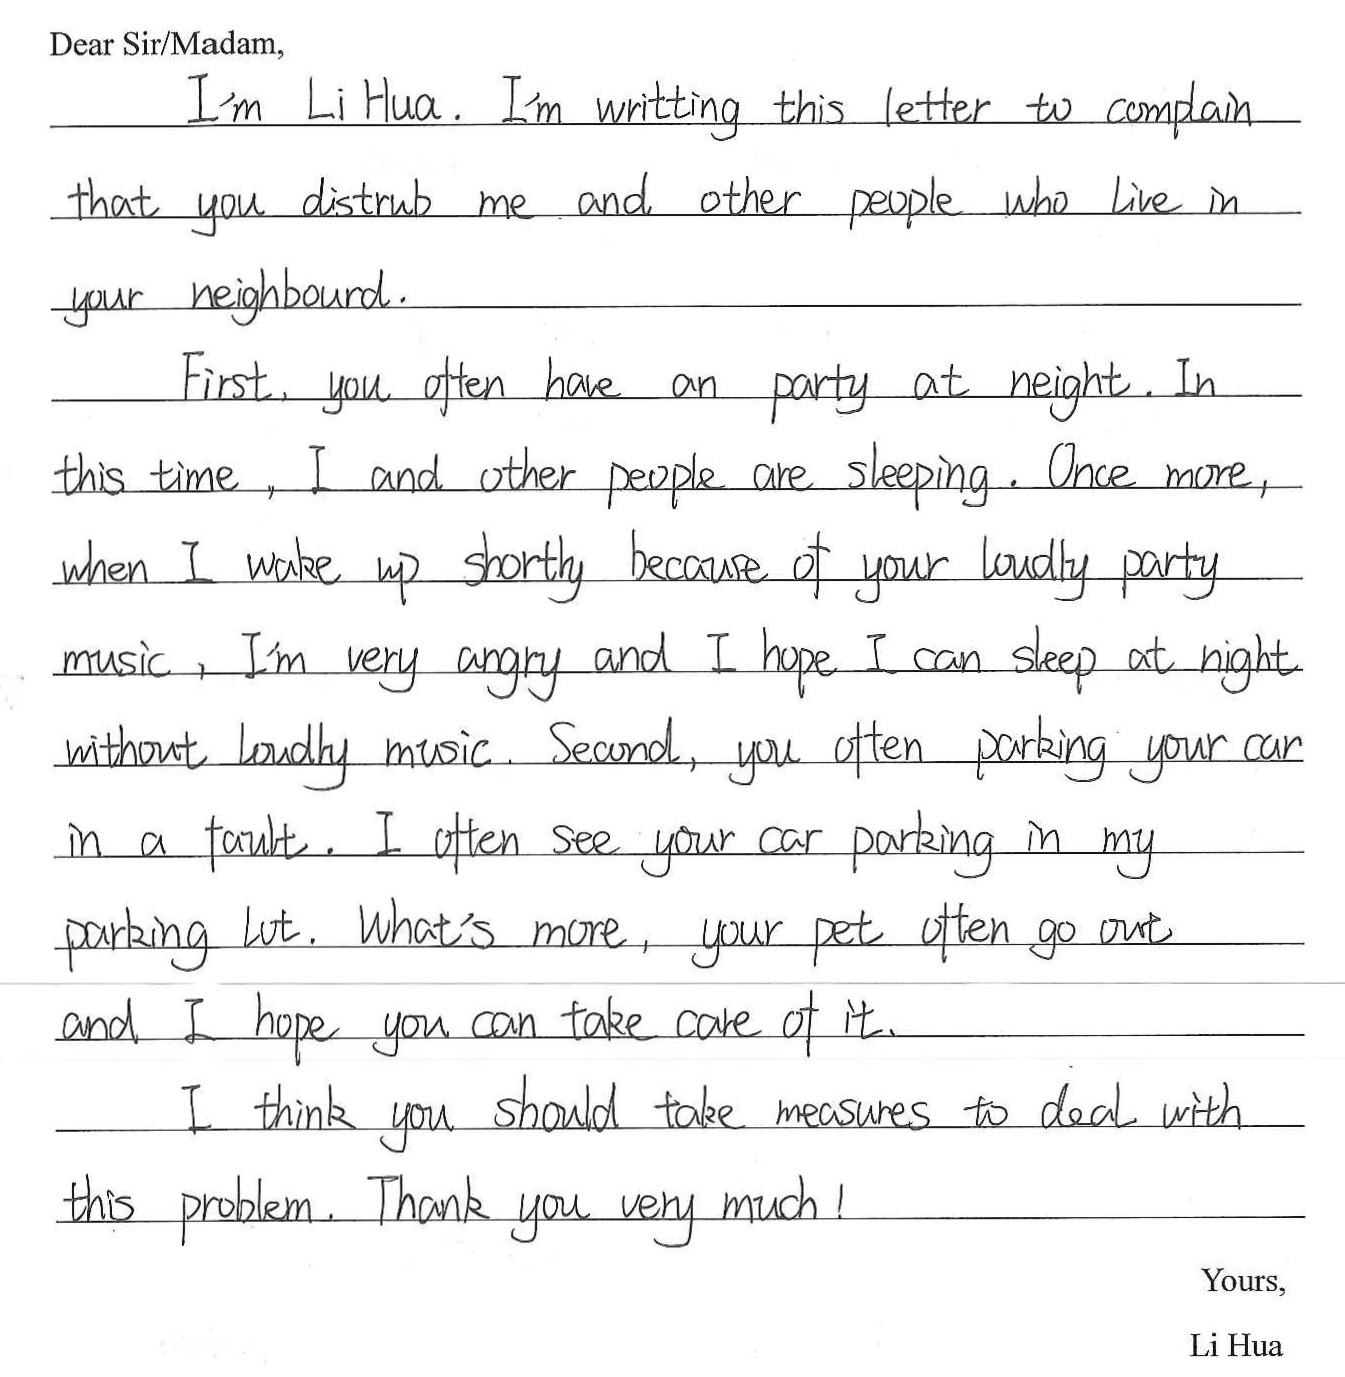 Dear Sir/Madam,
I'm Li Hua. I'm writting this letter to complain
that you distrub me and other people who live in
your neighbourd.
First, you often have an party at neight. In
this time, I and other people are sleeping. Once more,
when I wake up shortly because of your loudly party
music, I'm very angry and I hope I can sleep at night
without loudly music. Second, you often parking your car
in a fault. I often see your car parking in my
parking lot. What's more, your pet often go out
and I hope you can take care of it.
I think you should take measures to deal with
this problem. Thank you very much!
Yours,
Li Hua